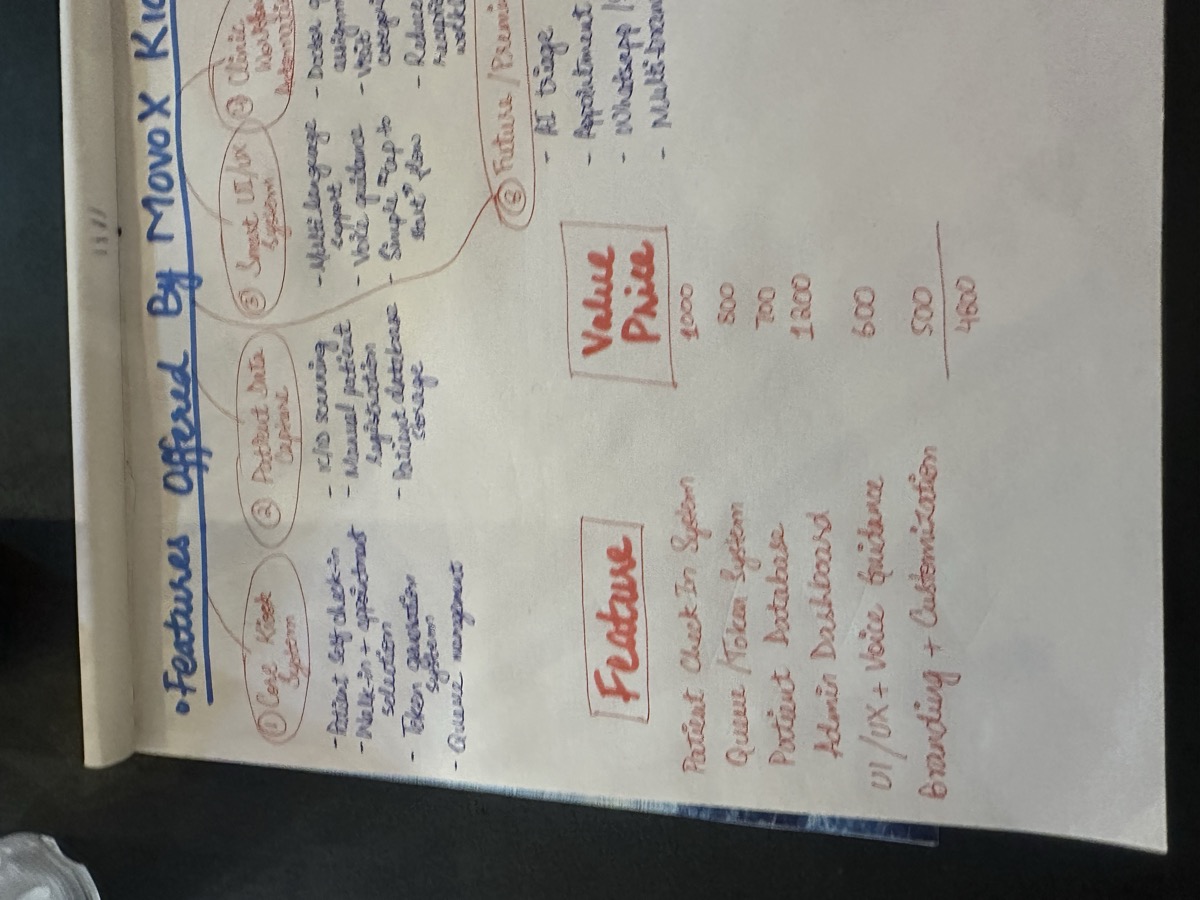 • Features Offered By MovoX
① Core Kiosk
System
- Patient self check-in
- Walk-in + appointment
selection
- Token generation
system
- Queue management
② Patient Data
Capture
- IC/ID scanning
- Manual patient
registration
- Patient database
storage
③ Smart UI/UX
System
- Multi language
support
- Voice guidance
- Simple "tap to
start" flow
④ Clinic
Workflow
- Doctor
- Visit
- Reduce
Future /
- AI triage
- Appointment
- Whatsapp /
Feature
Value
Price
Patient Check-In System 1000
Queue / Token System 800
Patient Database 700
Admin Dashboard 1200
UI/UX + Voice Guidance 600
Branding + Customization 500
4800